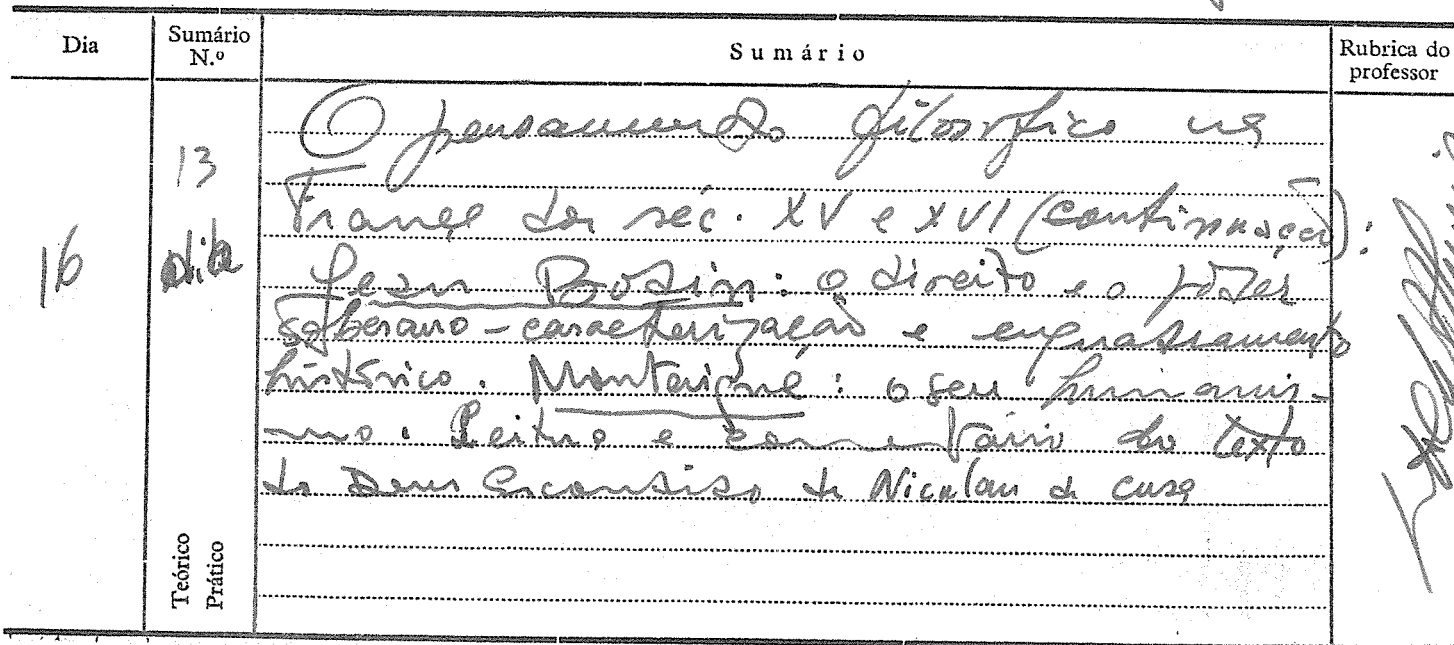 Dia
Sumário N.º
Sumário
Rubrica do professor
16
13
O pensamento filosófico na
França dos séc. XV e XVI (continuação):
Jean Bodin: o direito e o poder
soberano - caracterização e enquadramento
histórico. Montaigne: o seu humanis-
mo. Leitura e comentário do texto
do Deus Escondido de Nicolau de Cusa
Teórico
Prático